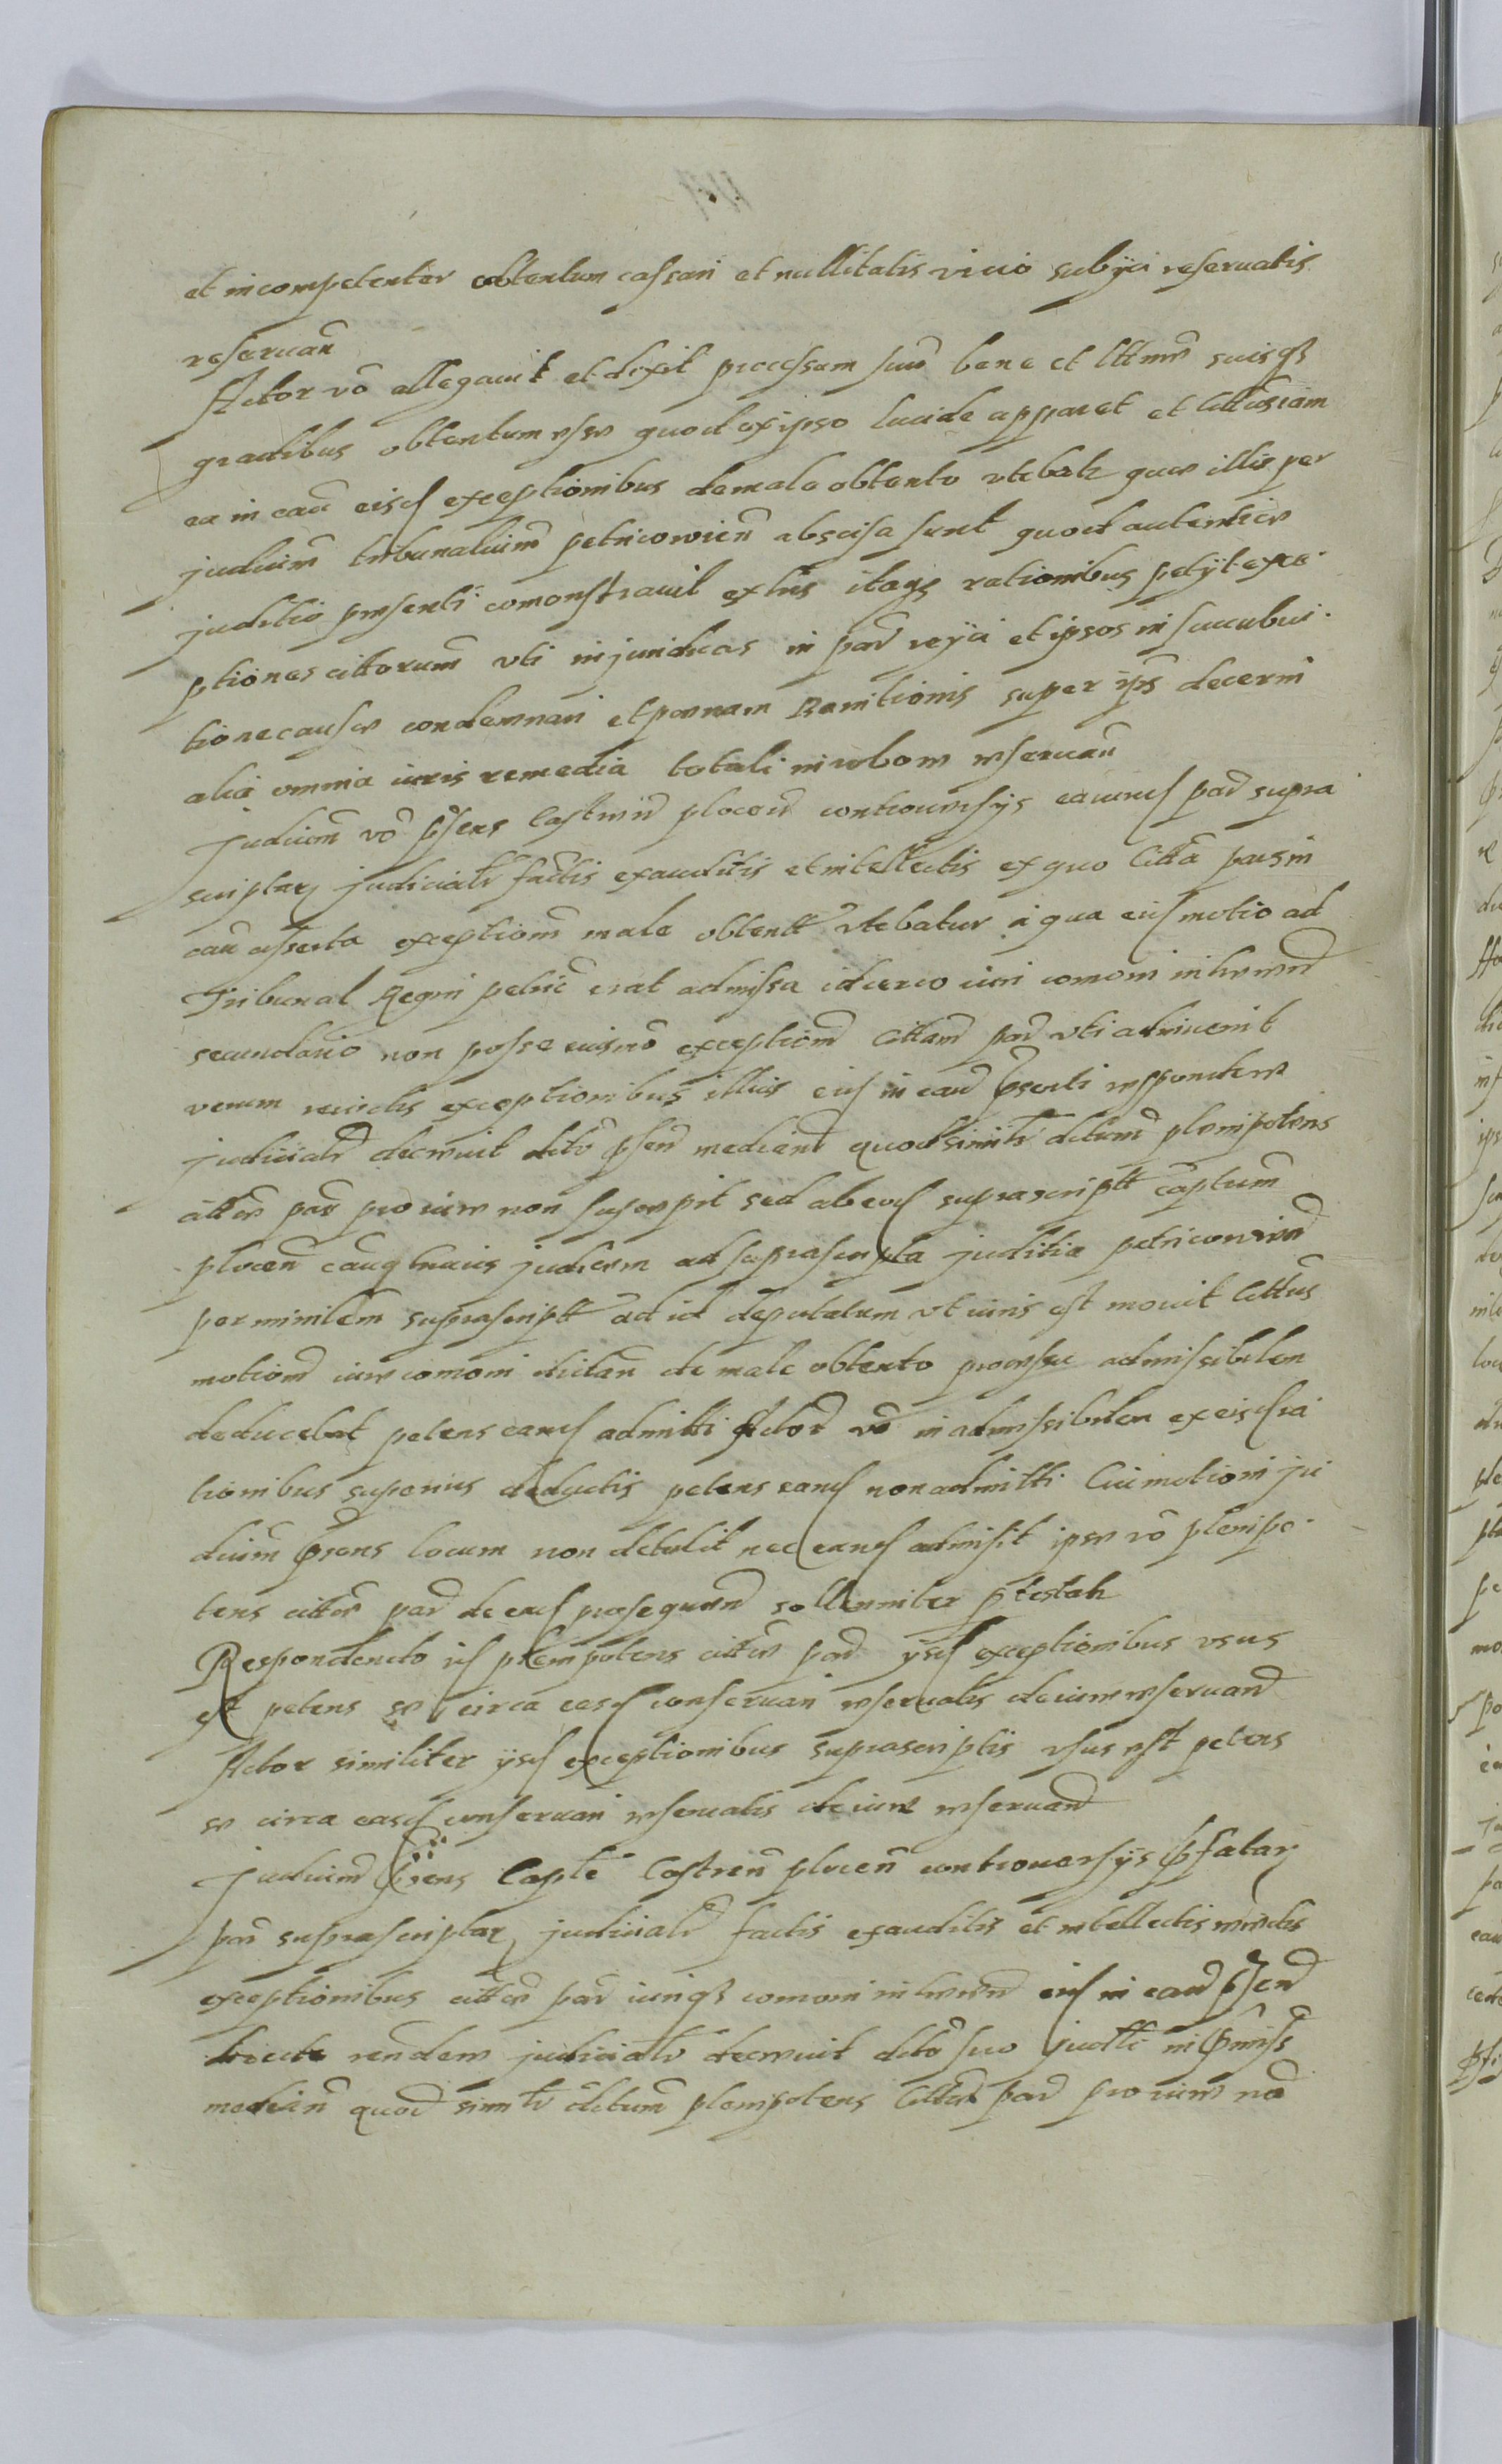 et incompetenter obtentum cassari et nullitatis vicio subijci reservatis
reservañ
Actor võ allegavit et dixit processum suũ bene et lttimẽ suisq
gradibus obtentum esse quod ex ipso lucide apparet et Citt⁹ iam
ea in cau eisd exceptionibus de male obtento vtebatr quæ illis per
judiciũm tribunalium petricovieñ abscisa sunt quod autenticæ
juditio præsenti comonstravit ex his itaq rationibus petijt exce
ptiones cittorum vti injuridicas in pad rejici et ipsos in succubui
tione causæ condemnari et pœnam Banitionis super ijs decerni
alia omnia iuris remedia totali in robore reservañ
Judicium võ p̃sens Castreñ plocen̄ controversijs earund pad supra
scriptar judicialr factis exauditis et intellectis ex quo Citta pars in
cau asserta exceptionẽ male obtent vtebatur a qua eiusd motio ad
Tribunal Regni petric erat admissa idcirco iuri comoni inhærend
secundario non posse eiusmõ exceptiond Cittam pad vti adinvenit
verum reiectis exceptionibus illius eid in cau p̃senti respondere
judicialr decrevit dcto p̃sen mediand quod similr dictum plenipotens
citte par pro iure non suscepit sed ab eod suprascriptt captum
plocen̄ eiusq huius judicium ad suprascripta juditia petricovien
per minlem suprascriptt ad id deputatum vt iuris est movit Cittus
motiond iure comoni dictan de male obtento processu admissibilem
deducebat petens eand admitti Actor võ inadmissibilem ex eisd ra
tionibus superius deductis petens eand non admitti Cui motioni ju
dicium p̃sens locum non detulit nec eand admisit ipse võ plenipo
tens citte pad de ead prosequend sollenniter p̃testatr
Respondendo id plenipotens citte pad ijsd exceptionibus vsus
est petens se circa easd conservari reservatis de iure reservand
Actor similiter ijsd exceptionibus suprascriptis vsus est petens
se circa easd conservari reservatis de iure reservand
Judicium p̃sens Caple Castreñ plocen̄ controversijs p̃fatar
par suprascriptar judicialr factis exauditis et intellectis reiectis
exceptionibus citte pad iuriq comoni inhærend eid in cau p̃sen
directe rendere judicialr decrevit dcto suo judtti in p̃miss
median quod similr dictum plenipotens Citte pad pro iure non